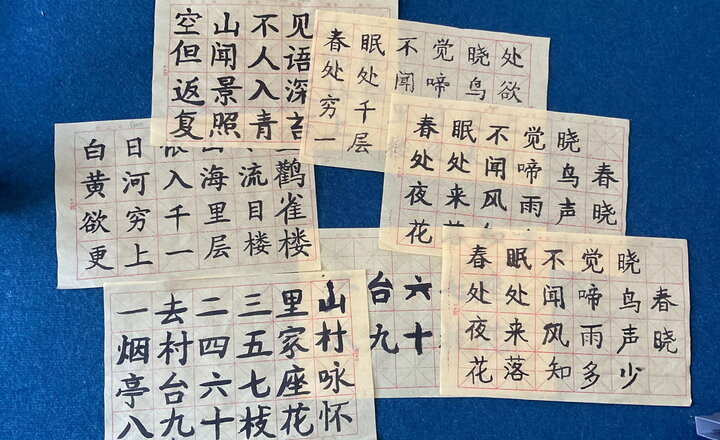 空山不见
但闻人语
返景入深
复照青
春眠不觉晓处
处处闻啼鸟欲
穷千
一层
春眠不觉晓
处处闻啼鸟春
夜来风雨声晓
花
白日
黄河入海流鹳
欲穷千里目雀
更上一层楼楼
台六
九十
春眠不觉晓
处处闻啼鸟春
夜来风雨声晓
花落知多少
一去二三里山
烟村四五家村
亭台六七座咏
八九十枝花怀